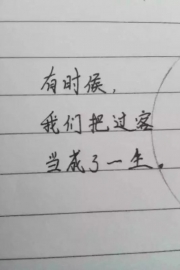 有时候，
我们把过客
当成了一生。